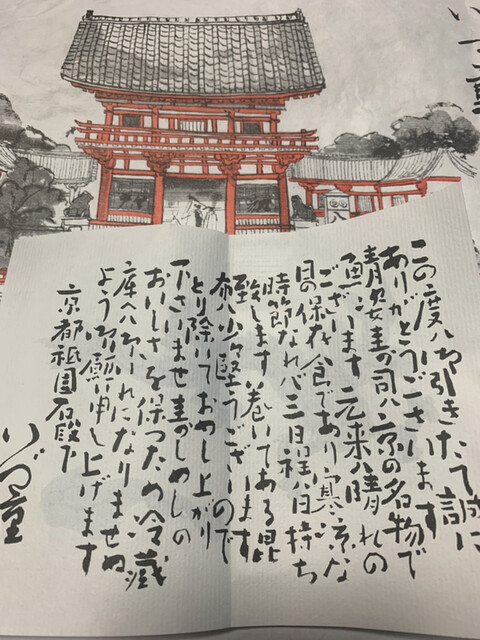 いづ重
この度ハ御引きたて誠に
ありがとうございます
鯖姿壽司ハ京の名物で
ございます 元来ハ晴れの
日の保存食であり寒涼な
時節なれバ三日程ハ日持ち
致します 巻いてある昆
布ハ少々堅うございますので
とり除いておめし上がり
下さいませ 壽しめしの
おいしさを保つため冷蔵
庫へハお入れになりませぬ
よう御願い申し上げます
京都祇園石段下
いづ重